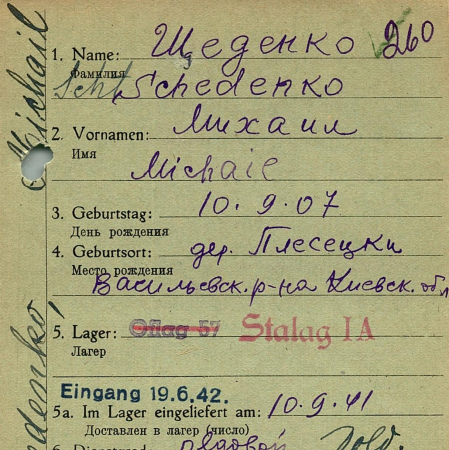 1. Name: Щеденко 260
Фамилия Schedenko
2. Vornamen: Михаил
Имя
Michail
3. Geburtstag: 10. 9. 07
День рождения
4. Geburtsort: дер. Плесецки
Место рождения
Васильевск. р-на Киевск. обл
5. Lager: Oflag 57 Stalag IA
Лагер
Eingang 19.6.42.
5a. Im Lager eingeliefert am: 10. 9. 41
Доставлен в лагер (число)
6. Dienstgrad: рядовой Sold.
Michail